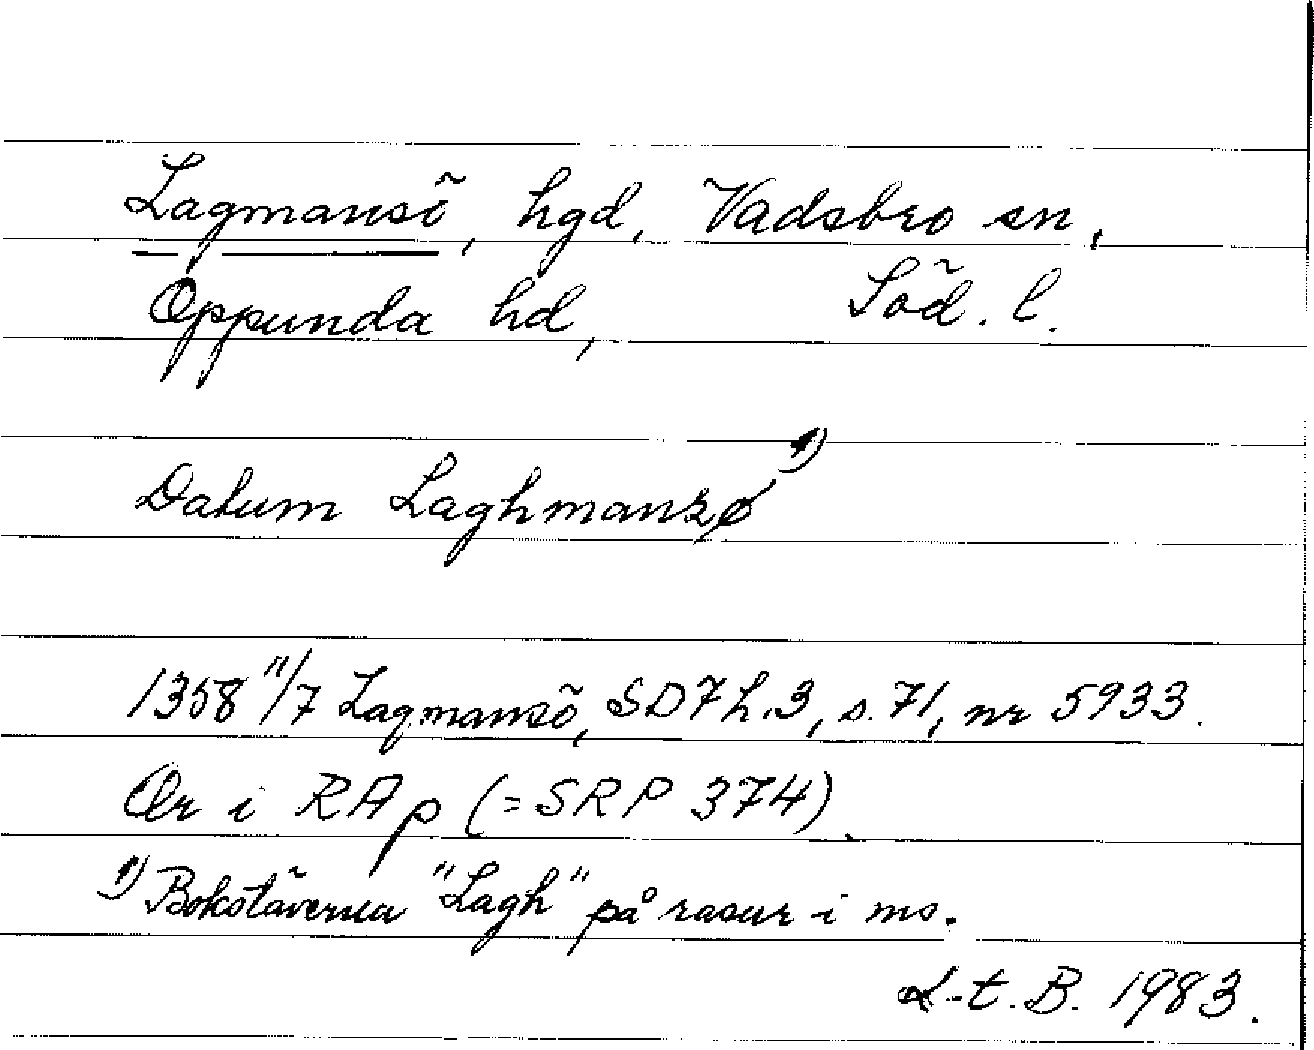 Lagmansö, hgd, Vadsbro sn,
Oppunda hd, Söd. l.
Datum Laghmanzø 1)
1358 11/7 Lagmansö, SD 7 h. 3, s. 71, nr 5933.
Or i RAp (= SRP 374).
1) Bokstäverna "Lagh" på rasur i ms.
L-t. B. 1983.